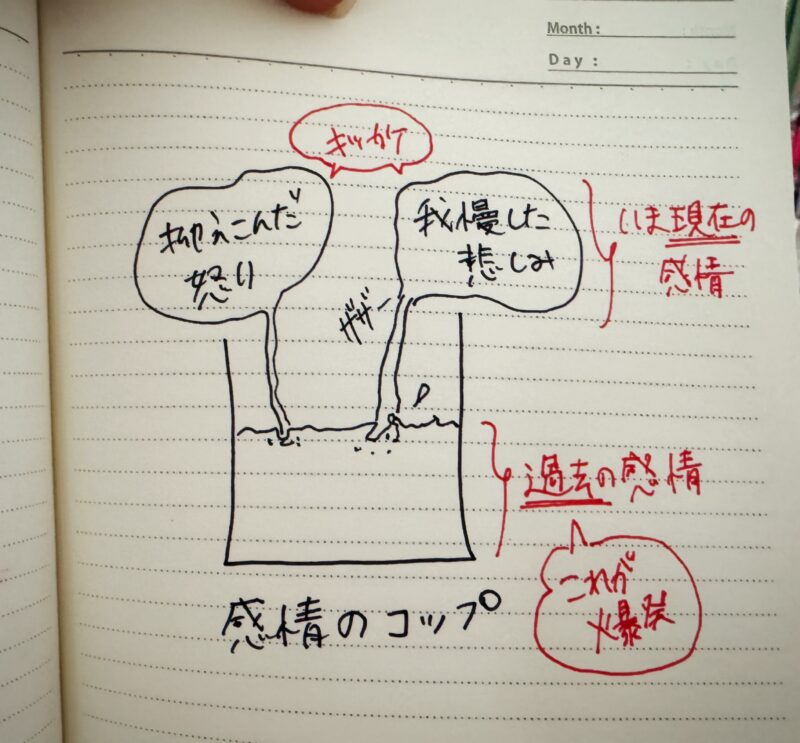 Month :
Day :
キッカケ
抑えこんだ
怒り
我慢した
悲しみ
いま現在の
感情
ザザー
過去の感情
これが
爆発
感情のコップ